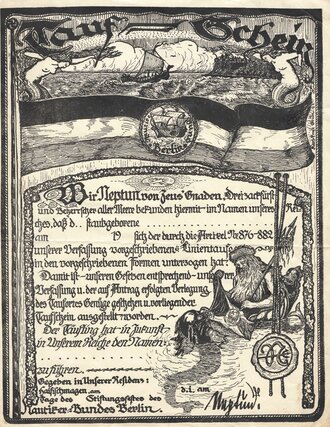 Tauf-Schein
Wir Neptun von Zeus' Gnaden, Dreizackfürst
und Beherrscher aller Meere bekunden hiermit im Namen unseres Rei-
ches, daß d.. staubgeborene
am 19 sich der durch die Artikel Nr. 876-882
unserer Verfassung vorgeschriebenen Linientaufe
in den vorgeschriebenen Formen unterzogen hat.
Damit ist unseren Gesetzen entsprechend unserer
Verfassung u. der auf Antrag erfolgten Verlegung
des Tauf­ortes Genüge geschehen u. vorliegender
Taufschein ausgestellt worden.
Der Täufling hat in Zukunft
in Unserem Reiche den Namen:
zu führen.
Gegeben in Unserer Residenz:
am d.i. am
Tage des Stiftungsfestes des
Nautiker-Bundes Berlin.
Neptun